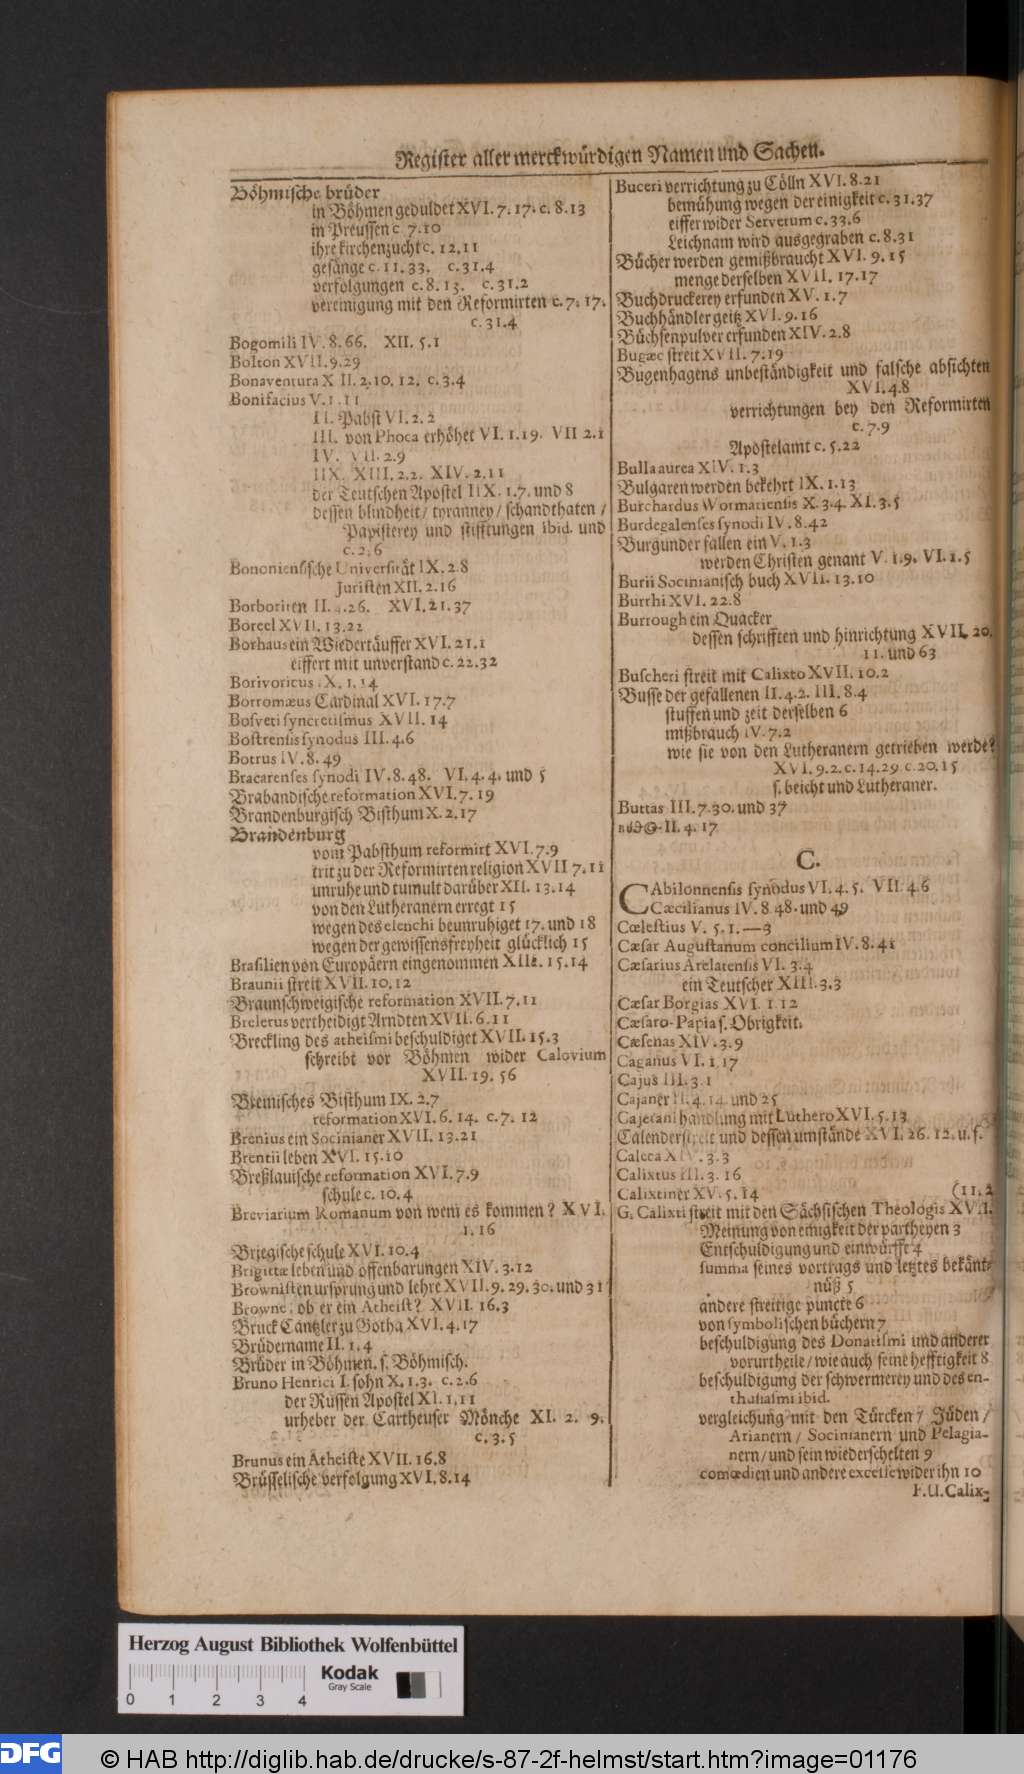 Register aller merckwürdigen Namen und Sachen.
Böhmische brüder
in Böhmen geduldet XVI. 7. 17. c. 8. 13
in Preussen c. 7. 10
ihre kirchenzucht c. 12. 11
gesänge c. 11. 33. c. 31. 4
verfolgungen c. 8. 13. c. 31. 2
vereinigung mit den Reformirten c. 7. 17.
c. 31. 4
Bogomili IV. 8. 66. XII. 5. 1
Bolton XVII. 9. 29
Bonaventura X II. 2. 10. 12. c. 3. 4
Bonifacius V. 1. 11
II. Pabst VI. 2. 2
III. von Phoca erhöhet VI. 1. 19. VII 2. 1
IV. VII. 2. 9
IIX. XIII. 2. 2. XIV. 2. 11
der Teutschen Apostel IIX. 1. 7. und 8
dessen blindheit / tyranney / schandthaten /
Papisterey und stifftungen ibid. und
c. 2. 6
Bononiensische Universität IX. 2. 8
Juristen XII. 2. 16
Borboriten II. 4. 26. XVI. 21. 37
Boreel XVII. 13. 22
Borhaus ein Wiedertäuffer XVI. 21. 1
eiffert mit unverstand c. 22. 32
Borivoricus IX. 1. 14
Borromæus Cardinal XVI. 17. 7
Bosveti syncretismus XVII. 14
Bostrensis synodus III. 4. 6
Botrus IV. 8. 49
Bracarenses synodi IV. 8. 48. VI. 4. 4. und 5
Brabandische reformation XVI. 7. 19
Brandenburgisch Bisthum X. 2. 17
Brandenburg
vom Pabsthum reformirt XVI. 7. 9
trit zu der Reformirten religion XVII 7. 11
unruhe und tumult darüber XII. 13. 14
von den Lutheranern erregt 15
wegen des elenchi beunruhiget 17. und 18
wegen der gewissensfreyheit glücklich 15
Brasilien von Europäern eingenommen XIII. 15. 14
Braunii streit XVII. 10. 12
Braunschweigische reformation XVII. 7. 11
Brelerus vertheidigt Arndten XVII. 6. 11
Breckling des atheismi beschuldiget XVII. 15. 3
schreibt vor Böhmen wider Calovium
XVII. 19. 56
Bremisches Bisthum IX. 2. 7
reformation XVI. 6. 14. c. 7. 12
Brenius ein Socinianer XVII. 13. 21
Brentii leben XVI. 15. 10
Breßlauische reformation XVI. 7. 9
schule c. 10. 4
Breviarium Romanum von wem es kommen? XVI.
1. 16
Briegische schule XVI. 10. 4
Brigittæ leben und offenbarungen XIV. 3. 12
Brownisten ursprung und lehre XVII. 9. 29. 30. und 31
Browne, ob er ein Atheist? XVII. 16. 3
Bruck Cantzler zu Gotha XVI. 4. 17
Brüdername II. 1. 4
Brüder in Böhmen. s. Böhmisch.
Bruno Henrici I. sohn X. 1. 3. c. 2. 6
der Russen Apostel XI. 1. 11
urheber der Cartheuser Mönche XI. 2. 9.
c. 3. 5
Brunus ein Atheiste XVII. 16. 8
Brüsselische verfolgung XVI. 8. 14
Buceri verrichtung zu Cölln XVI. 8. 21
bemühung wegen der einigkeit c. 31. 37
eiffer wider Servetum c. 33. 6
Leichnam wird ausgegraben c. 8. 31
Bücher werden gemißbraucht XVI. 9. 15
menge derselben XVII. 17. 17
Buchdruckerey erfunden XV. 1. 7
Buchhändler geitz XVI. 9. 16
Büchsenpulver erfunden XIV. 2. 8
Bugæc streit XVII. 7. 19
Bugenhagens unbeständigkeit und falsche absichten
XVI. 4. 8
verrichtungen bey den Reformirten
c. 7. 9
Apostelamt c. 5. 22
Bulla aurea XIV. 1. 3
Bulgaren werden bekehrt IX. 1. 13
Burchardus Wormatiensis X. 3. 4. XI. 3. 5
Burdegalenses synodi IV. 8. 42
Burgunder fallen ein V. 1. 3
werden Christen genant V. 1. 9. VI. 1. 5
Burii Socinianisch buch XVII. 13. 10
Burrhi XVI. 22. 8
Burrough ein Quacker
dessen schrifften und hinrichtung XVII. 20.
11. und 63
Buscheri streit mit Calixto XVII. 10. 2
Busse der gefallenen II. 4. 2. III. 8. 4
stuffen und zeit derselben 6
mißbrauch IV. 7. 2
wie sie von den Lutheranern getrieben werde?
XVI. 9. 2. c. 14. 29 c. 20. 15
s. beicht und Lutheraner.
Buttas III. 7. 30. und 37
II. 4. 17
C.
CAbilonnensis synodus VI. 4. 5. VII. 4. 6
Cæcilianus IV. 8. 48. und 49
Cœlestius V. 5. 1.—3
Cæsar Augustanum concilium IV. 8. 41
Cæsarius Arelatensis VI. 3. 4
ein Teutscher XIII. 3. 3
Cæsar Borgias XVI. 1. 12
Cæsaro-Papia s. Obrigkeit.
Cæsenas XIV. 3. 9
Caganus VI. 1. 17
Cajus III. 3. 1
Cajaner II. 4. 14. und 25
Cajetani handlung mit Luthero XVI. 5. 13
Calenderstreit und dessen umstände XVI. 26. 12. u. f.
Caleca XIV. 3. 3
Calixtus III. 3. 16
Calixtiner XV. 5. 14 (11. 2
G. Calixti streit mit den Sächsischen Theologis XVII.
Meinung von einigkeit der partheyen 3
Entschuldigung und einwürffe 4
summa seines vortrags und letztes bekänt-
nüß 5
andere streitige puncte 6
von symbolischen büchern 7
beschuldigung des Donatismi und anderer
vorurtheile / wie auch seine hefftigkeit 8
beschuldigung der schwermerey und des en-
thusiasmi ibid.
vergleichung mit den Türcken / Jüden /
Arianern / Socinianern und Pelagia-
nern / und sein wiederschelten 9
comœdien und andere excesse wider ihn 10
F. U. Calix-
Herzog August Bibliothek Wolfenbüttel
Kodak
Gray Scale
0 1 2 3 4
DFG © HAB http://diglib.hab.de/drucke/s-87-2f-helmst/start.htm?image=01176